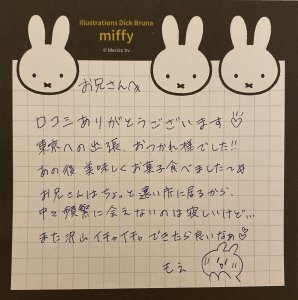 Illustrations Dick Bruna
miffy
© Mercis bv
お兄さんへ
口コミありがとうございます♡
東京への出張 おつかれ様でした!!
あの後 美味しくお菓子食べました〜
お兄さんはちょっと遠い所に居るから、
中々頻繁に会えないのは寂しいけど…
また沢山イチャイチャできたら良いなぁ♡
もえ